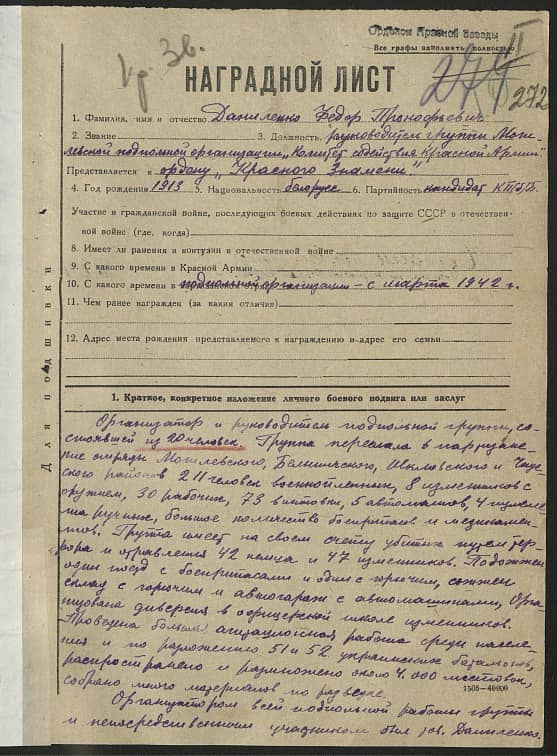 Орденом Красной Звезды
Все графы заполнять полностью
Пр. Зв.
II
272
НАГРАДНОЙ ЛИСТ
1. Фамилия, имя и отчество Даниленко Федор Прокофьевич
2. Звание 3. Должность, руководитель группы Моги-
левской подпольной организации „Комитет содействия Красной Армии"
Представляется к ордену „Красного Знамени"
4. Год рождения 1913 5. Национальность белорусс 6. Партийность кандидат КП(б)Б
Участие в гражданской войне, последующих боевых действиях по защите СССР и отечествен-
ной войне (где, когда)
8. Имеет ли ранения и контузии в отечественной войне
9. С какого времени в Красной Армии
10. С какого времени в подпольной организации – с марта 1942 г.
11. Чем ранее награжден (за какие отличия)
12. Адрес места рождения представляемого к награждению и адрес его семьи
Для подшивки
1. Краткое, конкретное изложение личного боевого подвига или заслуг
Организатор и руководитель подпольной группы, со-
стоявшей из 20 человек. Группа переслала в партизанс-
кие отряды Могилевского, Белыничского, и Чаус-
ского районов 211 человек военнопленных, 8 изменников с
оружием, 30 рабочих, 73 винтовки, 5 автоматов, 4 пулеме-
та ручных, большое количество боеприпасов и медикамен-
тов. Группа имеет на своем счету убитых путем тер-
рора и отравления 42 немца и 47 изменников. Подожжен
один поезд с боеприпасами и один с горючим, сожжен
склад с горючим и автогараж с автомашинами, Орга-
низована диверсия в офицерской школе изменников.
Проведена большая агитационная работа среди населе-
ния и по разложению 51 и 52 украинских батальонов,
распространено и размножено около 4.000 листовок,
собрано много материалов по разведке.
1505—40000
Организатором всей подпольной работы группы
и непосредственным участником был тов. Даниленко.